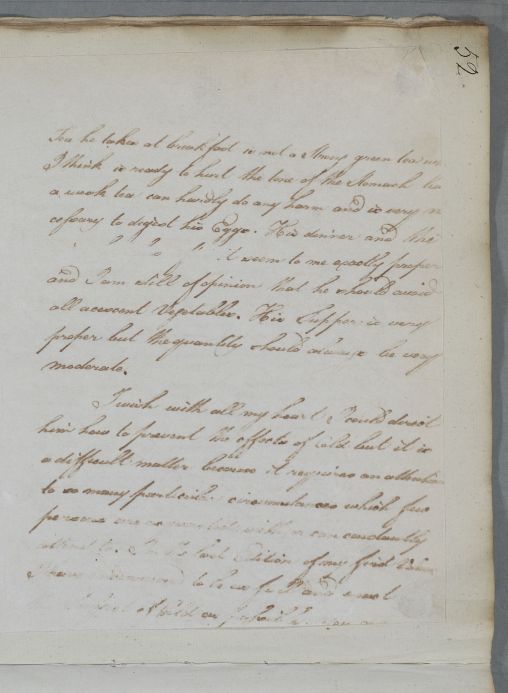 52.
Tea he takes at breakfast is not a strong green tea
I think is ready to hurt the tone of the Stomach
a weak tea can hardly do any harm and is very
cessary to digest his Eggs. His dinner and
it seem to me exactly proper
and I am still of opinion that he should avoid
all acescent Vegetables. His Supper is very
proper but the quantity should always be very
moderate.
I wish with all my heart I could direct
him how to prevent the effects of cold but it is
a difficult matter because it requires an attention
to so many particular circumstances which few
persons are can constantly
attend to. In the last Edition of my first
I have to be as full as
of Cold as